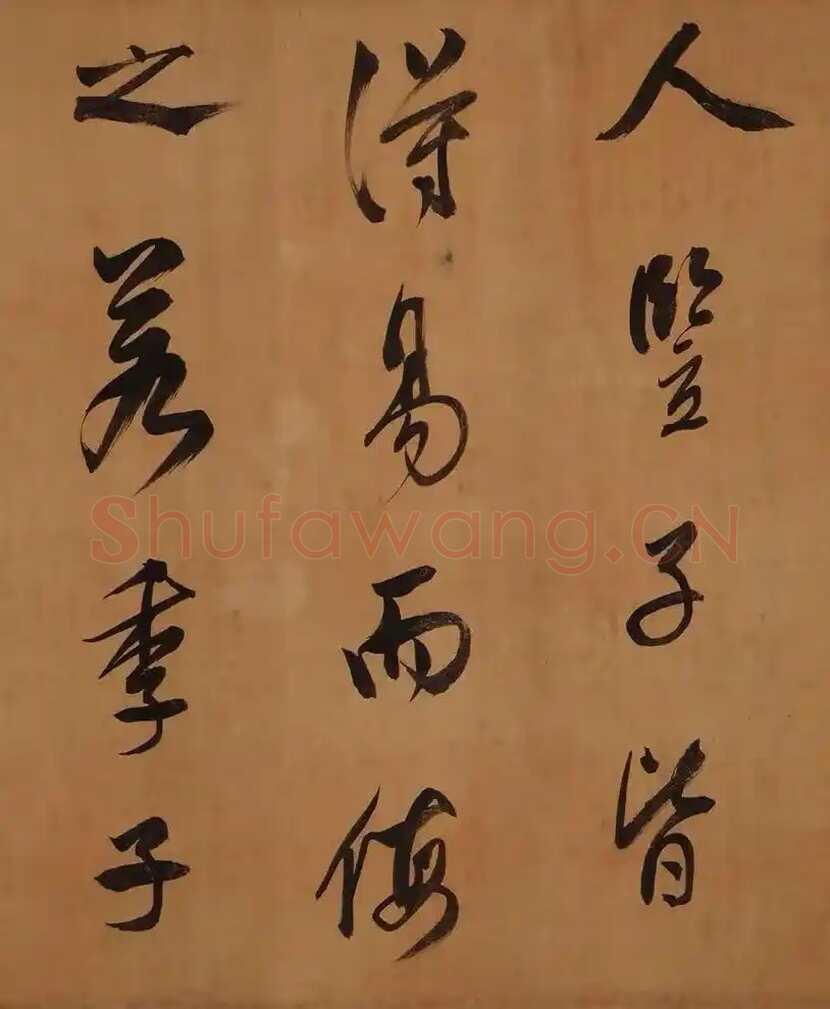 人豎子皆
得易而侮
之若季子
Shufawang.CN